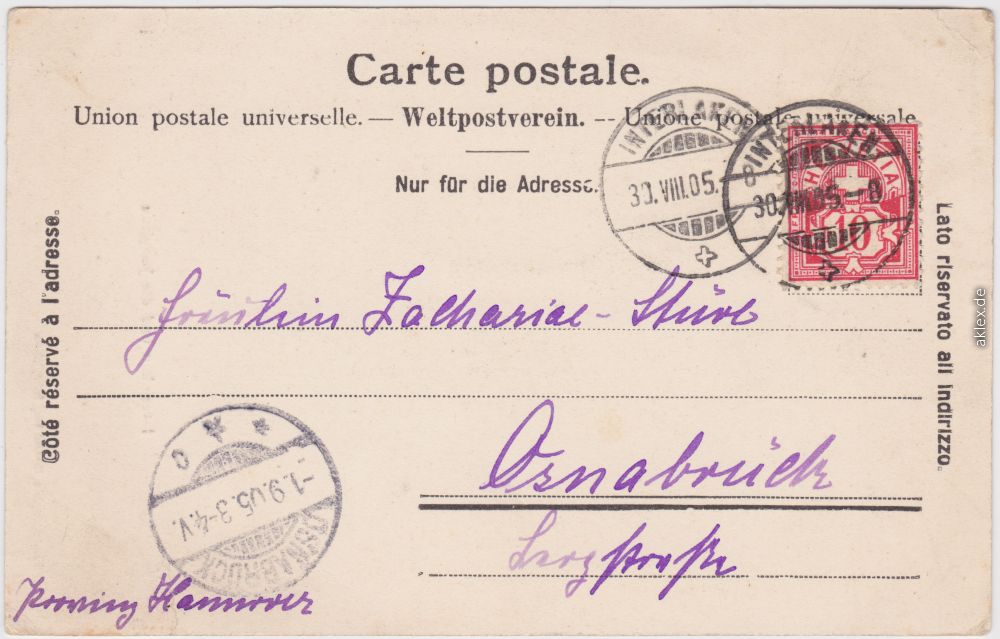 Carte postale.
Union postale universelle. — Weltpostverein. -- Unione postale universale
Nur für die Adresse.
INTERLAKEN
30.VIII.05.
INTERLAKEN
30.VIII.05.–8
HELVETIA
10
Côté réservé à l'adresse.
Lato riservato all indirizzo.
Fräulein Zachariae - Stüve
Osnabrück
Bergstraße
OSNABRÜCK
-1.9.05.3-4.V.
c
Provinz Hannover
aklex.de